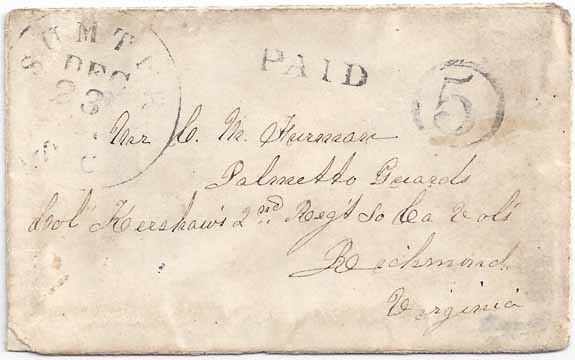 SUMTER
DEC
23
S C
PAID
5
Mr C. M. Furman
Palmetto Guards
Col Kershaw's 2nd Reg't So Ca Vols
Richmond
Virginia